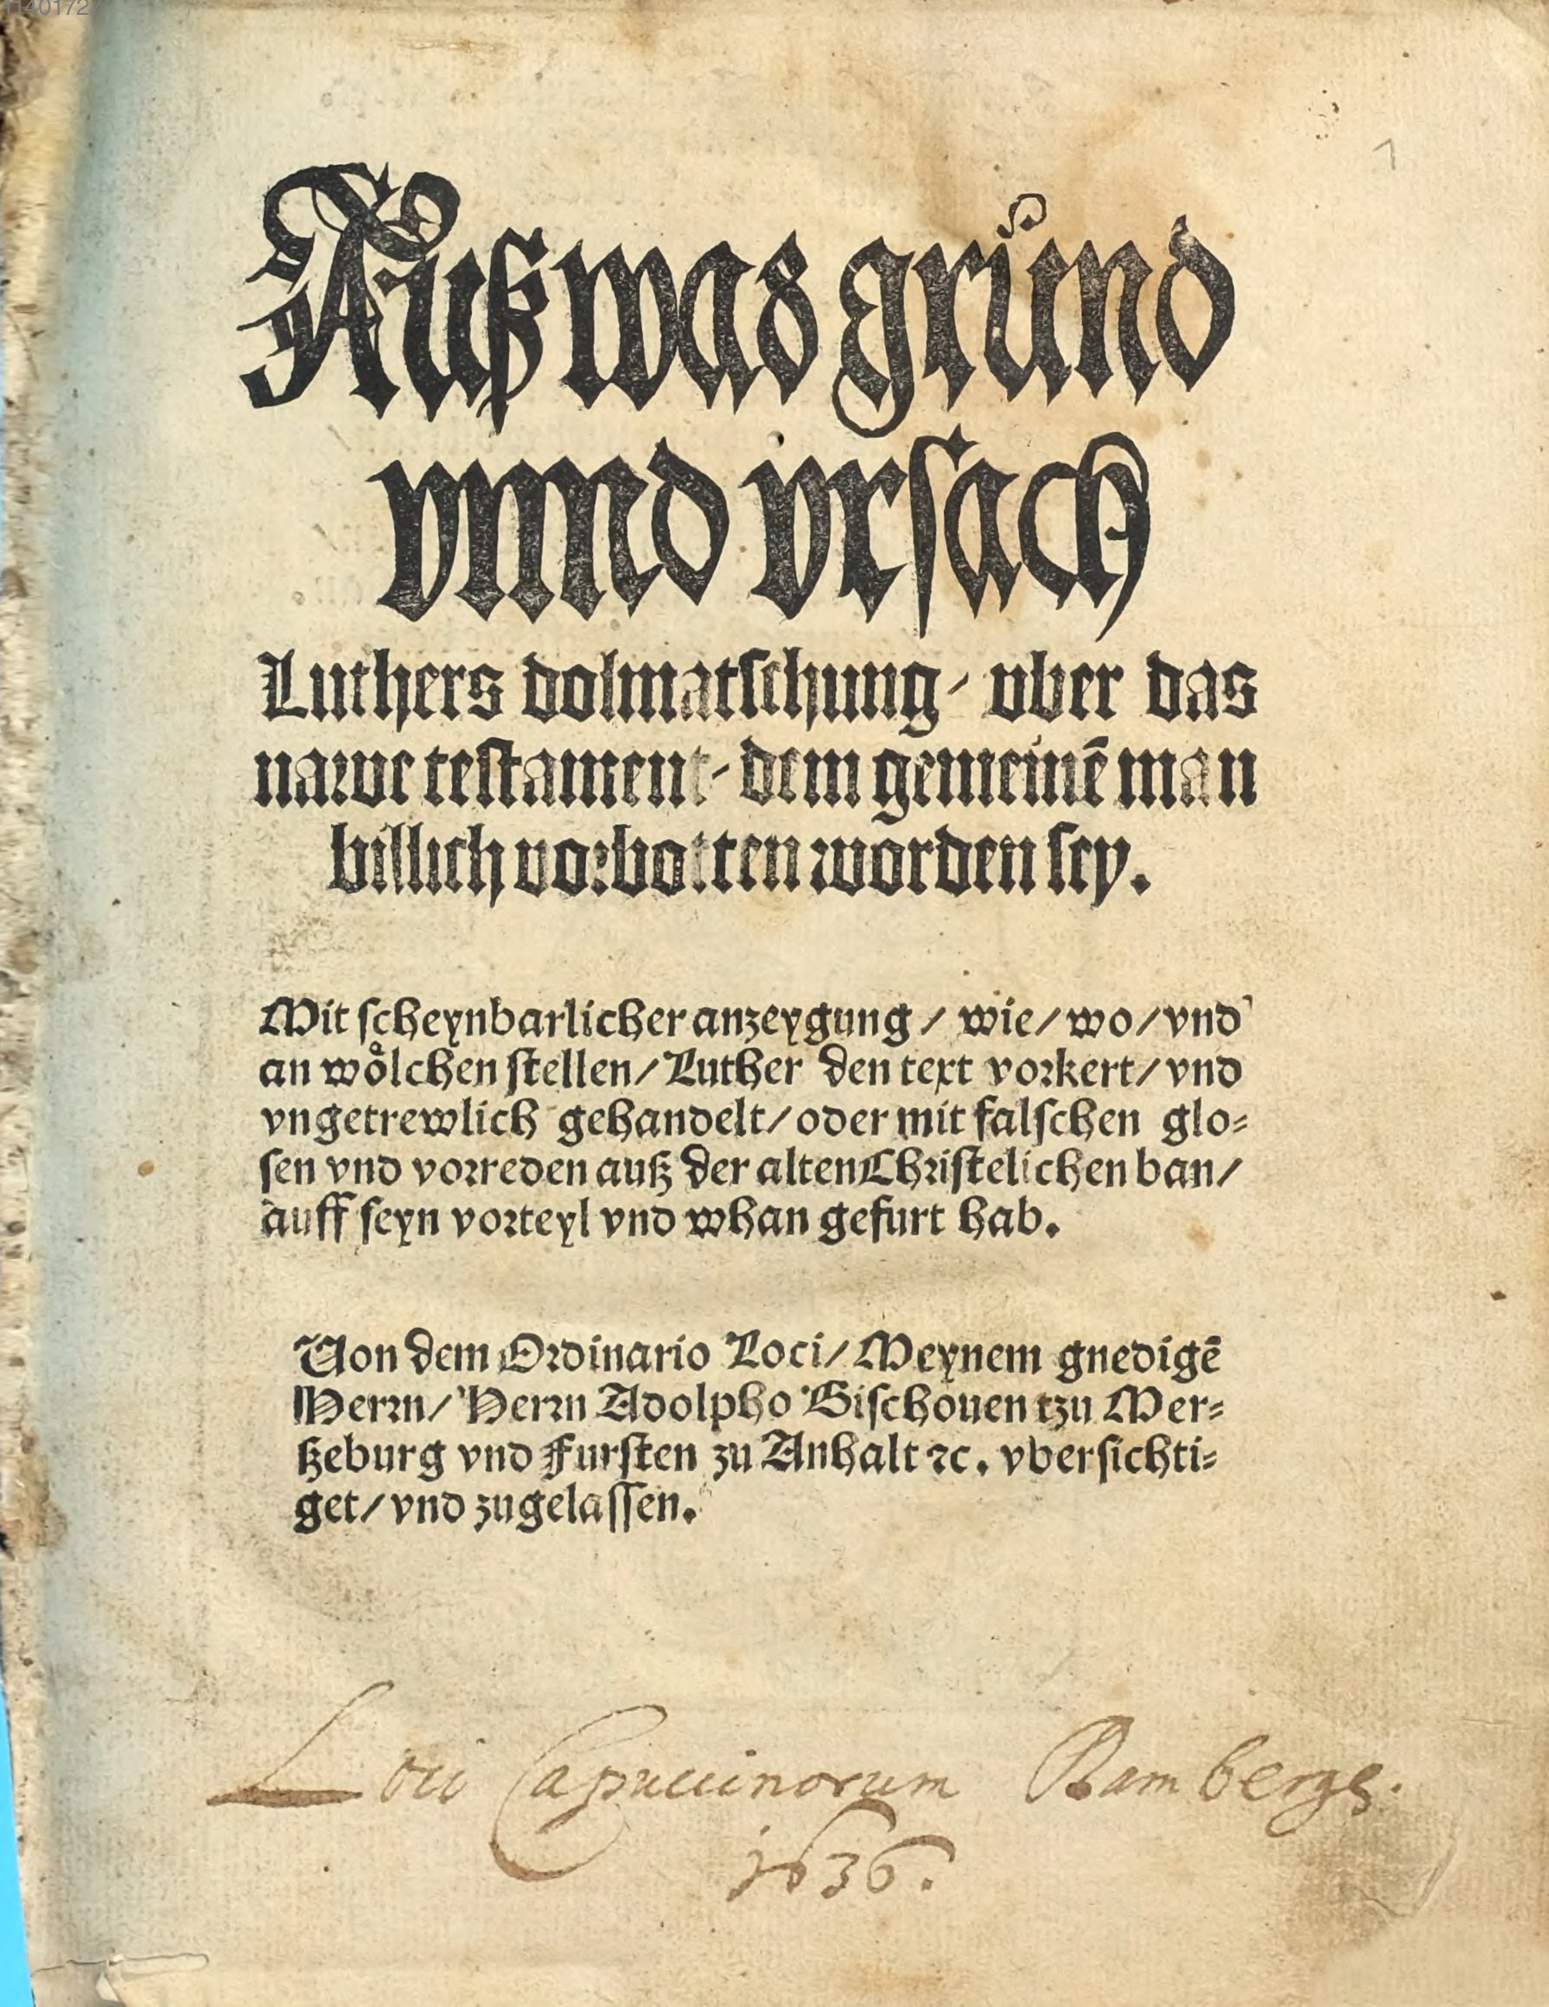 1140172
1
Auß was grůnd
vnnd vrsach
Luthers dolmatschung / vber das
nawe testament / dem gemeinē man
billich vorbotten worden sey.
Mit scheynbarlicher anzeygung / wie / wo / vnd
an wo̊lchen stellen / Luther den text vorkert / vnd
vngetrewlich gehandelt / oder mit falschen glo⸗
sen vnd vorreden auß der alten Christelichen ban /
auff seyn vorteyl vnd whan gefurt hab.
Von dem Ordinario Loci / Meynem gnedigē
Herrn / Herrn Adolpho Bischouen tzu Mer⸗
ßeburg vnd Fursten zu Anhalt ꝛc. vbersichti⸗
get / vnd zugelassen.
Loci Capuccinorum Bamberge.
1636.